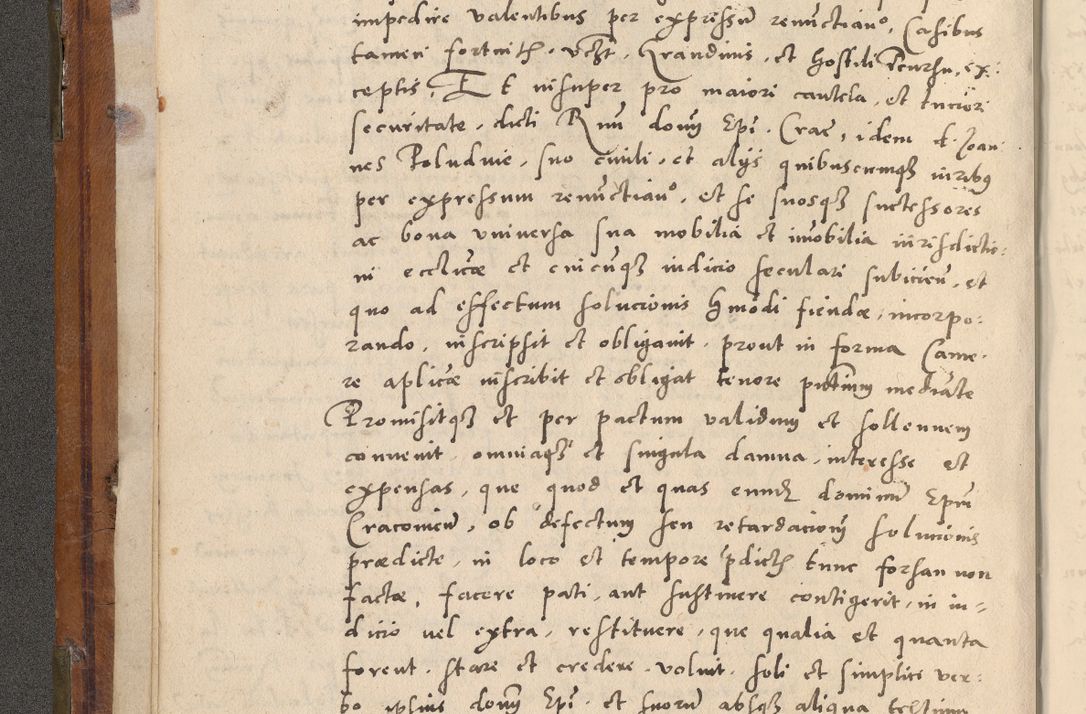 impedire valentibus per expressũ renũctiañ. Casibus
tamen fortuitħ. Grandinis, et hostili Incursu, ex:
ceptis, Et insuper pro maiori cautela, et tuciori
securitate, dicti Rmi domỹ Epĩ. Crac̃, idem d. Joan:
nes Poludnie, suo ciuili, et alijs quibuscumqȝ iuribȝ
per expressum renũctiañ, et se suosqȝ successores
ac bona vniuersa sua mobilia et im̃obilia iurisdictio:
ni eccl̃icæ et cuicũqȝ iudicio seculari subicieñ, et
quo ad effectum solucionis hmõdi fiendæ, incorpo:
rando, inscripsit et obligauit, prout in forma Came:
re ap̃licæ inscribit et obligat tenore pñtium mediãte
Promisitqȝ et per pactum validum et sollennem
conuenit, omniaqȝ et singula damna, interesse et
expensas, que quod et quas eundȝ dominũ Epm̃
Cracouieñ, ob defectum seu retardacionẽ solucionis
prædicte, in loco et tempore p̃dictħ tunc forsan non
factæ, facere pati, aut sustinere contigerit, in iu-
dicio uel extra, restituere, que qualia et quanta
forent, stare et credere voluit, soli et simplici ver:
bo ipsius domĩ Epĩ, et suorũ absqȝ aliqua testium